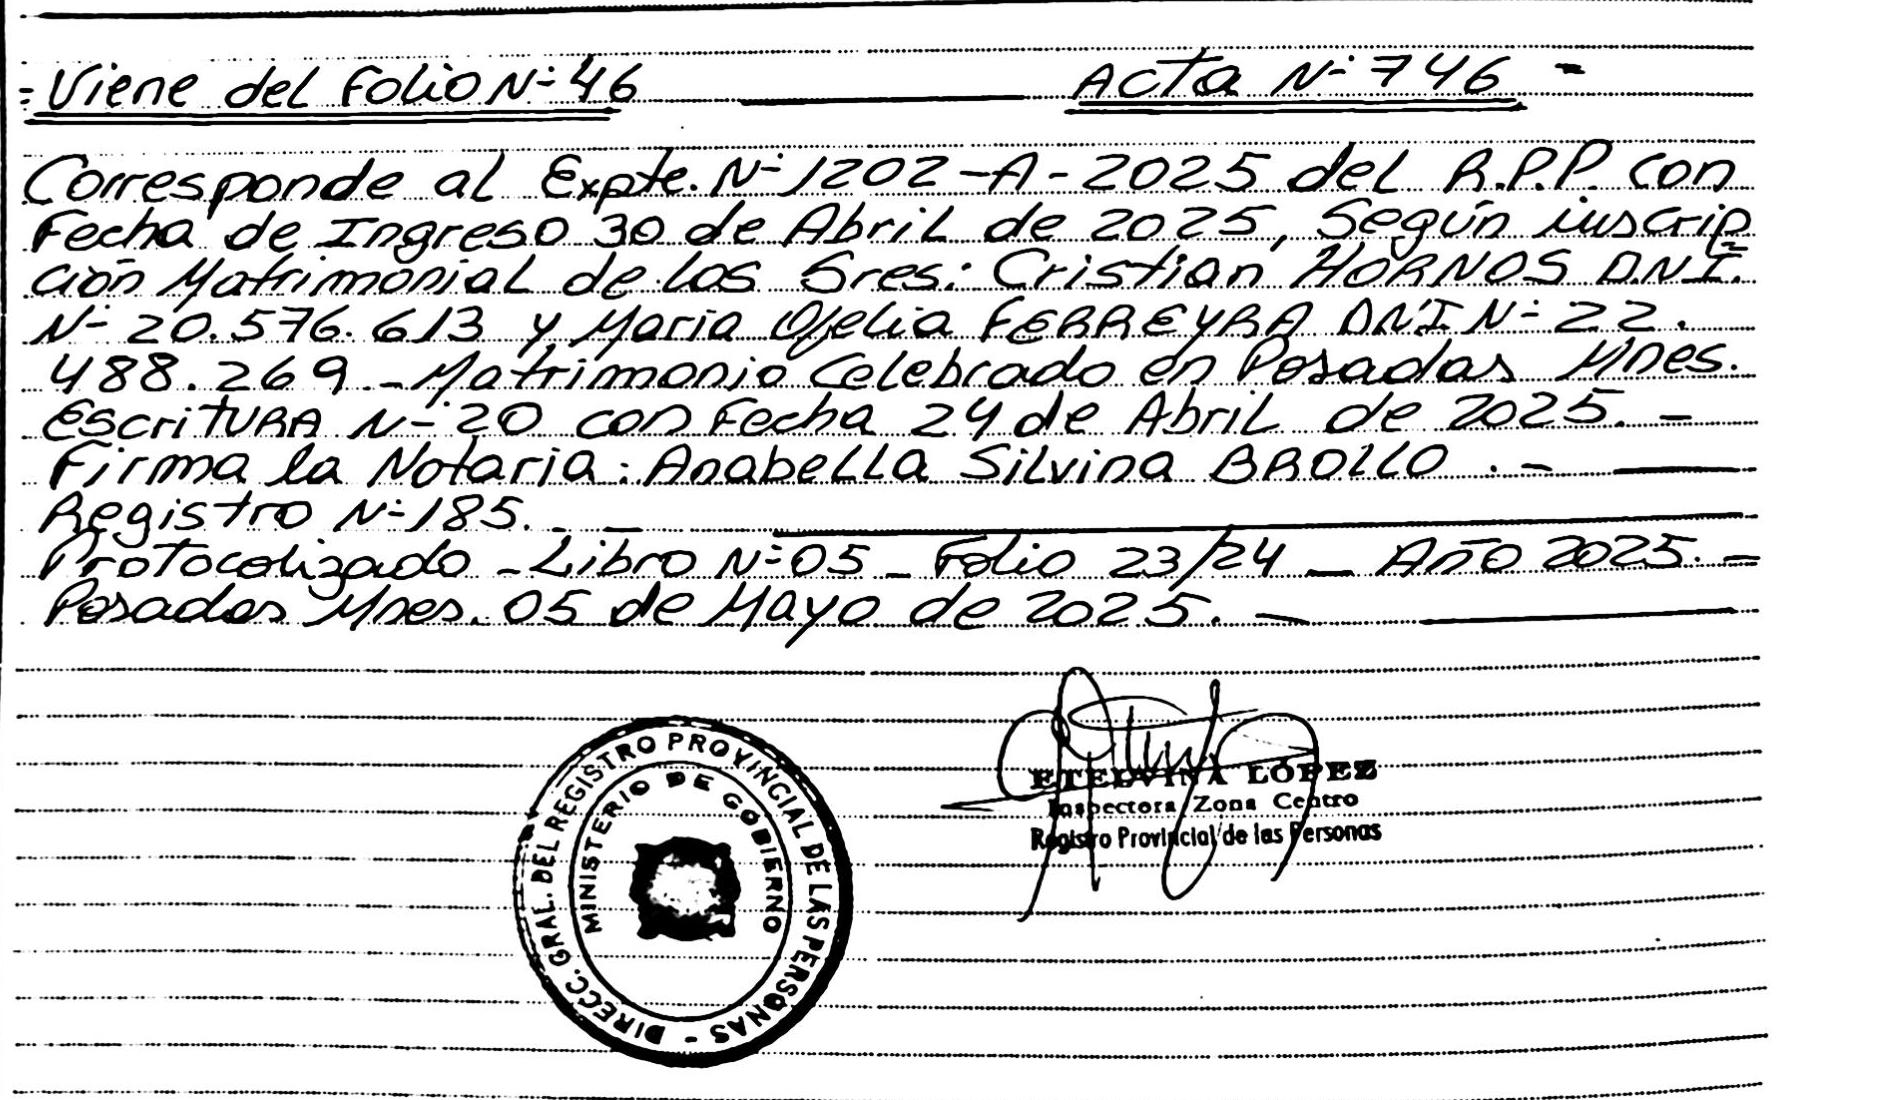 = Viene del Folio N° 46 Acta N° 746 =
Corresponde al Expte. N° 1202-A-2025 del R.P.P. con
Fecha de Ingreso 30 de Abril de 2025, Según inscrip=
ción Matrimonial de los Sres: Cristian HORNOS D.N.I.
N° 20.576.613 y Maria Ofelia FERREYRA DNI N° 22.
488.269.- Matrimonio Celebrado en Posadas Mnes.
EscriTURA N° 20 con Fecha 24 de Abril de 2025. -
Firma la Notaria: Anabella Silvina BROLLO . -
Registro N° 185. -
Protocolizado - Libro N° 05 - Folio 23/24 - Año 2025. =
Posadas Mnes. 05 de Mayo de 2025. -
DIRECC. GRAL. DEL REGISTRO PROVINCIAL DE LAS PERSONAS -
MINISTERIO DE GOBIERNO
ETELVINA LÓPEZ
Inspectora Zona Centro
Registro Provincial de las Personas